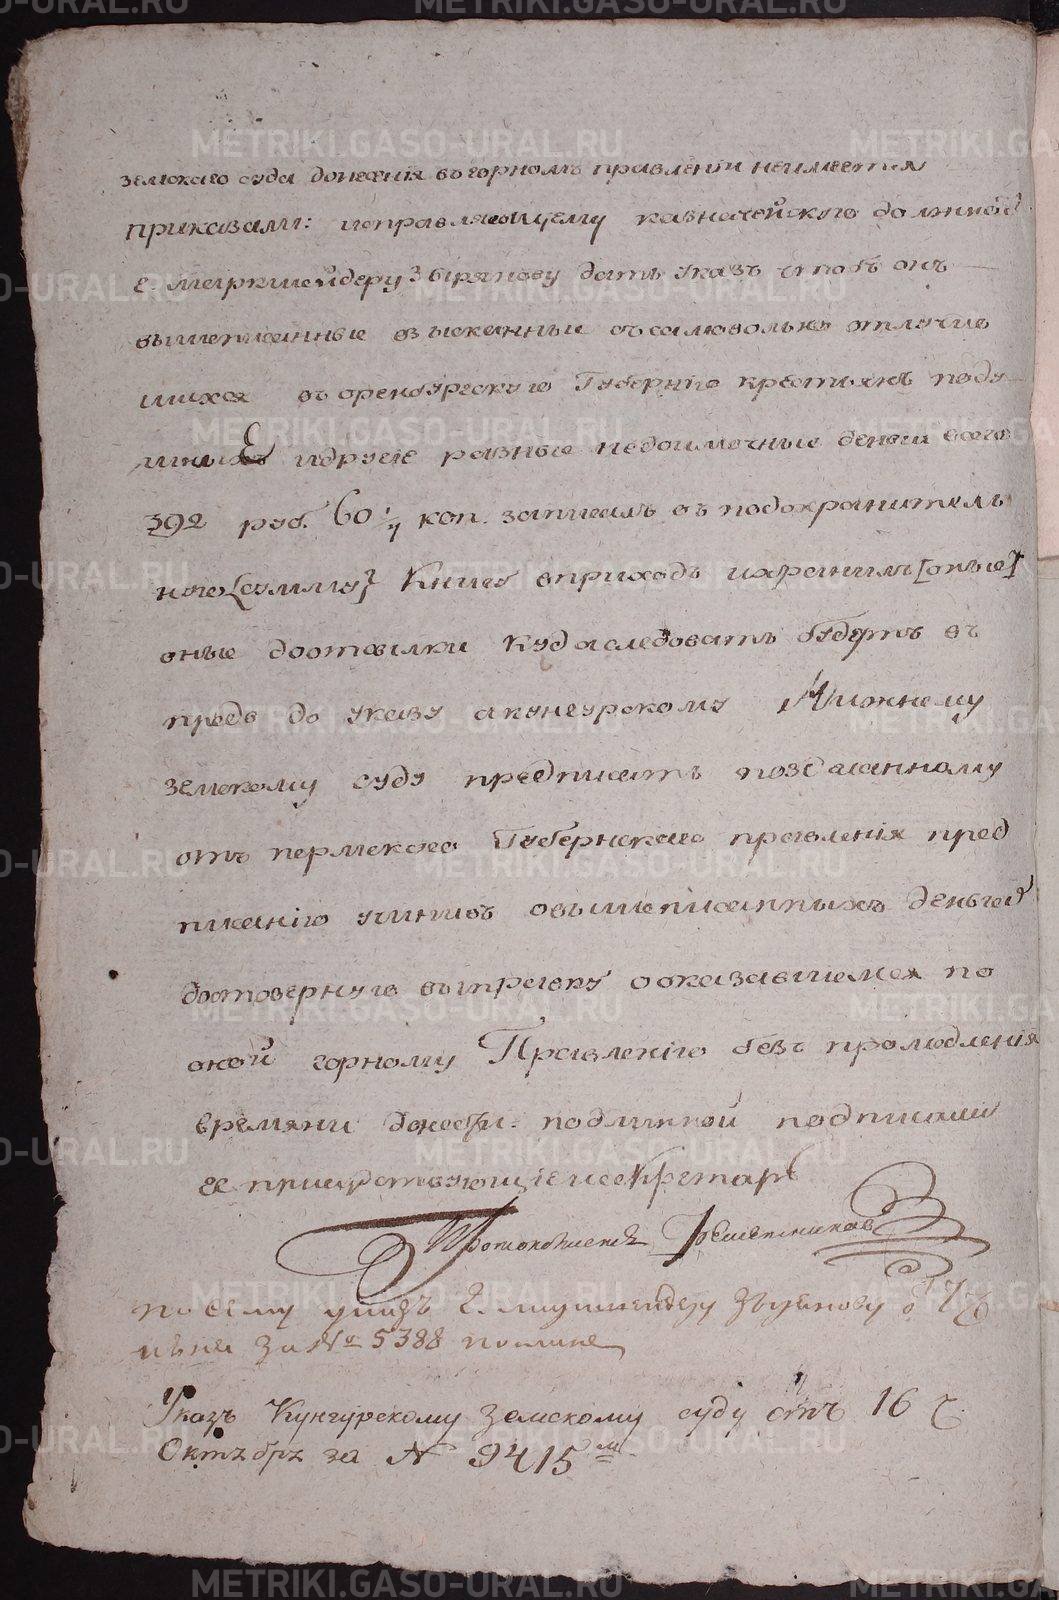 земскаго суда донесения въ горномъ правлении неимеется
приказали: исправляющему казначейскую должность
г. маркшейдеру Збирянову дать указъ чтобъ онъ
вышеписанные взысканныя съ самовольно отлучив
шихся въ оренбургскую Губернию крестьянъ поду
шныхъ и другие разные недоимочные деньги всего
392 руб. 60 1/4 коп. записалъ въ подохранитель
ную [сумму] Книгу вприходъ и хранилъ [оные]
оные доставки куда следовать будетъ в
предь до указу а кунгурскому Нижнему
земскому суду предписать по зделанному
отъ пермскаго Губернскаго правления пред
писанию учинивъ о вышеписанныхъ деньгах
достоверную выправку о оказавшемся по
оной горному Правлению безъ промедления
времяни донести. подлинной подписали
ее присутствующие и секретарь
Протоколистъ Решетников
по сему указъ г. маркшейдеру Збиянову о 17 ч
июня за № 5388 послан
Указъ Кунгурскому Земскому суду отъ 16 ч.
Октября за № 9415 м